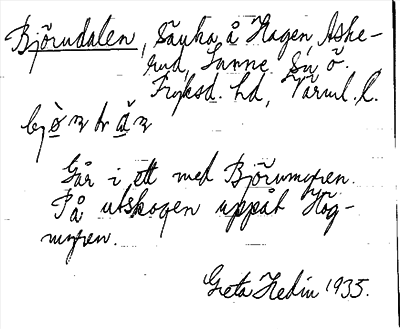 Björudalen, Sänka å Hagen, Aske-
rud, Sunne Sn ö.
Fryksd. hd, Värml. l.
Går i ett med Björumyren.
På utskogen uppåt Hög-
myren.
Greta Hedin 1935.